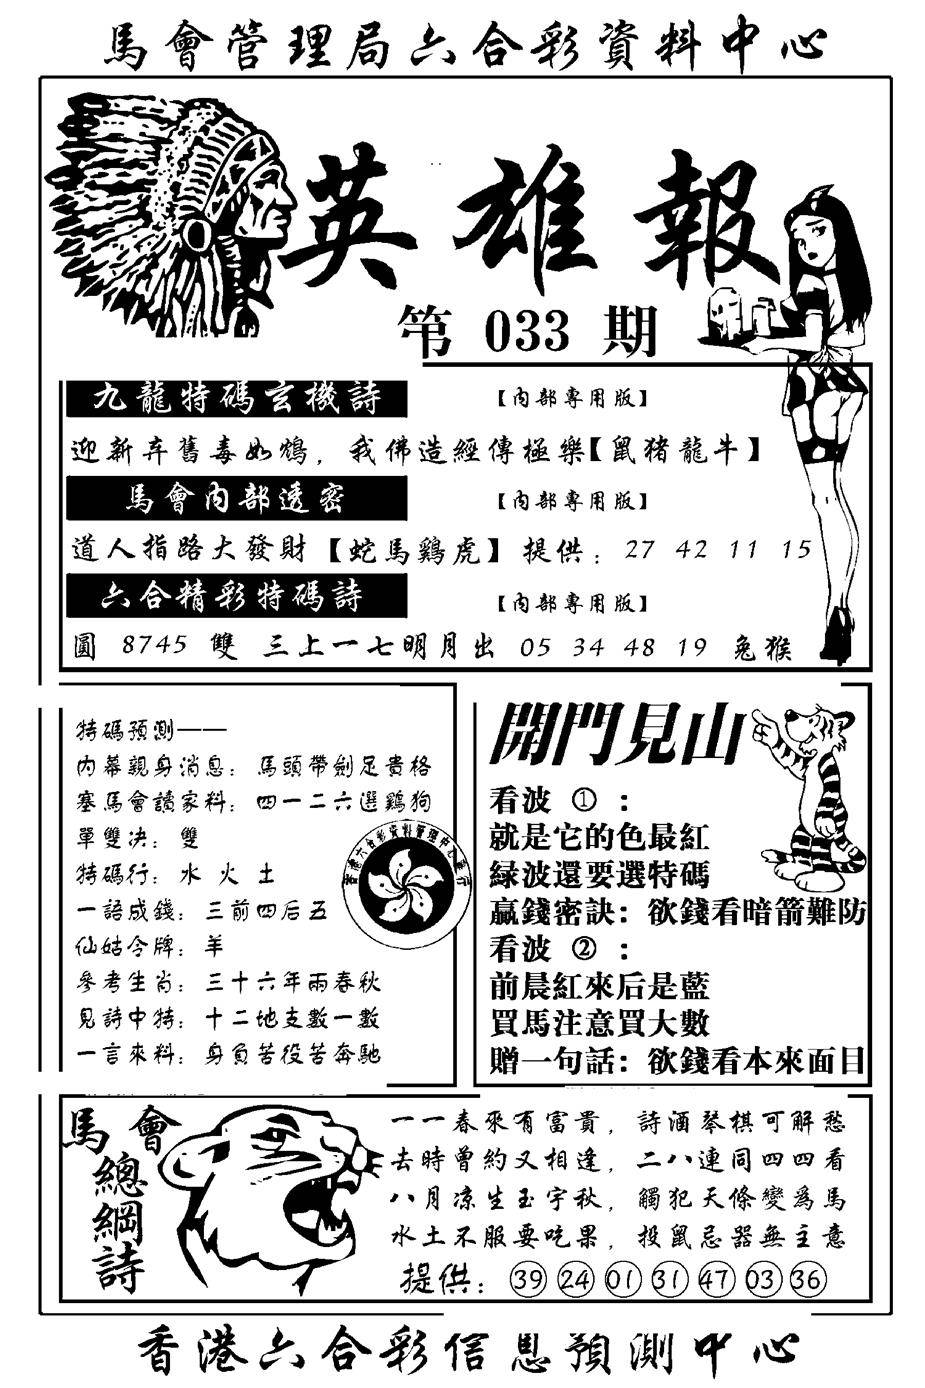 馬會管理局六合彩資料中心
英雄報
第 033 期
九龍特碼玄機詩 【內部專用版】
迎新弃舊毒如鴆，我佛造經傳極樂【鼠猪龍牛】
馬會內部透密 【內部專用版】
道人指路大發財【蛇馬鷄虎】提供：27 42 11 15
六合精彩特碼詩 【內部專用版】
圓 8745 雙 三上一七明月出 05 34 48 19 兔猴
特碼預測——
內幕親身消息：馬頭帶劍足貴格
塞馬會讀家料：四一二六選鷄狗
單雙决：雙
特碼行：水 火 土
一語成錢：三前四后五
仙姑令牌：羊
參考生肖：三十六年兩春秋
見詩中特：十二地支數一數
一言來料：身負苦役苦奔馳
香港六合彩資料管理中心發行
開門見山
看波 ①：
就是它的色最紅
緑波還要選特碼
贏錢密訣：欲錢看暗箭難防
看波 ②：
前晨紅來后是藍
買馬注意買大數
贈一句話：欲錢看本來面目
馬會
總綱詩
一一春來有富貴，詩酒琴棋可解愁
去時曾約又相逢，二八連同四四看
八月凉生玉宇秋，觸犯天條變爲馬
水土不服要吃果，投鼠忌器無主意
提供：39 24 01 31 47 03 36
香港六合彩信息預測中心